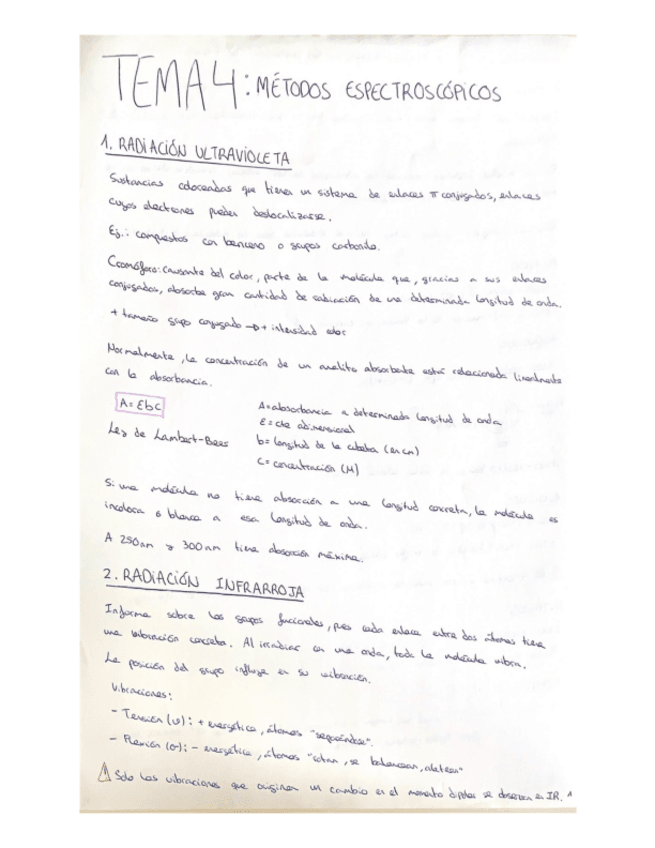 TEMA 4: MÉTODOS ESPECTROSCÓPICOS
1. RADIACIÓN ULTRAVIOLETA
Sustancias coloreadas que tienen un sistema de enlaces π conjugados, enlaces
cuyos electrones pueden deslocalizarse.
Ej.: compuestos con benceno o grupos carbonilo.
Cromóforo: causante del color, parte de la molécula que, gracias a sus enlaces
conjugados, absorbe gran cantidad de radiación de una determinada longitud de onda.
+ tamaño grupo conjugado → + intensidad color
Normalmente, la concentración de un analito absorbente está relacionada linealmente
con la absorbancia.
A = εbc
Ley de Lambert-Beer
A = absorbancia a determinada longitud de onda
ε = cte adimensional
b = longitud de la cubeta (en cm)
C = concentración (M)
Si una molécula no tiene absorción a una longitud concreta, la molécula es
incolora o blanca a esa longitud de onda.
A 250nm y 300nm tiene absorción máxima.
2. RADIACIÓN INFRARROJA
Informa sobre los grupos funcionales, pues cada enlace entre dos átomos tiene
una vibración concreta. Al irradiar con una onda, toda la molécula vibra.
La posición del grupo influye en su vibración.
Vibraciones:
- Tensión (υ): + energética, átomos "separándose".
- Flexión (σ): - energética, átomos "rotan, se balancean, aletean"
⚠ Solo las vibraciones que originen un cambio en el momento dipolar se observan en IR.